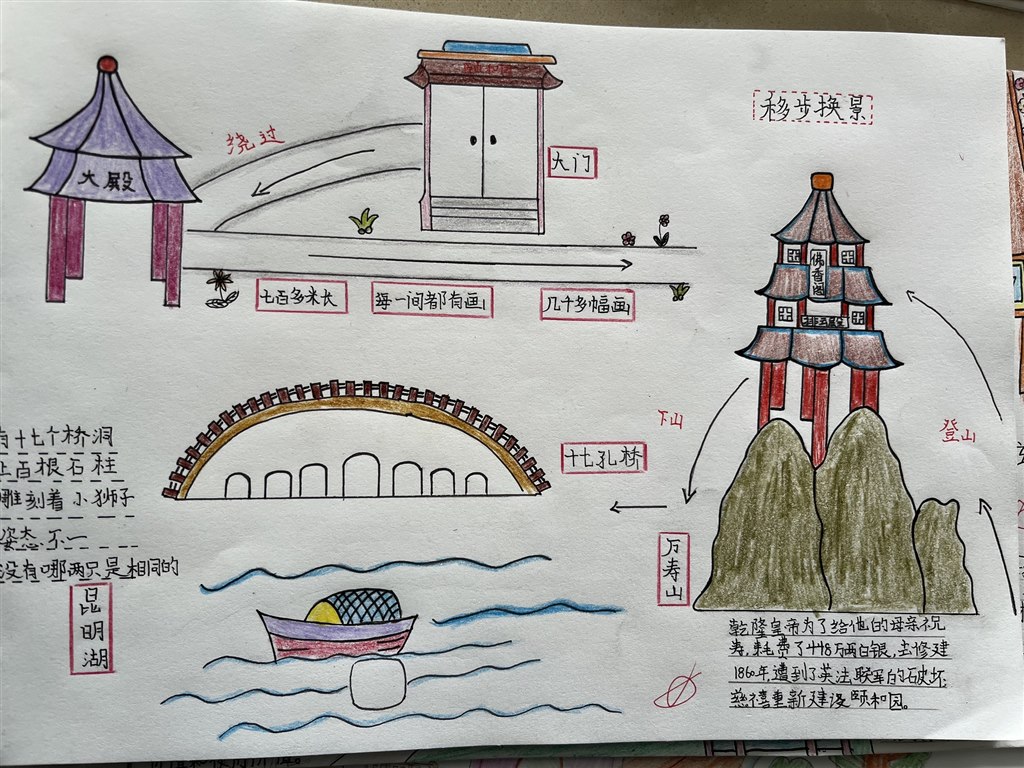 移步换景
颐和园
大门
绕过
大殿
七百多米长
每一间都有画
几千多幅画
佛香阁
排云殿
下山
登山
十七孔桥
有十七个桥洞
上百根石柱
雕刻着小狮子
姿态不一
没有哪两只是相同的
昆明湖
万寿山
乾隆皇帝为了给他的母亲祝
寿，耗费了448万两白银，主修建
1860年遭到了英法联军的破坏
慈禧重新建设颐和园。